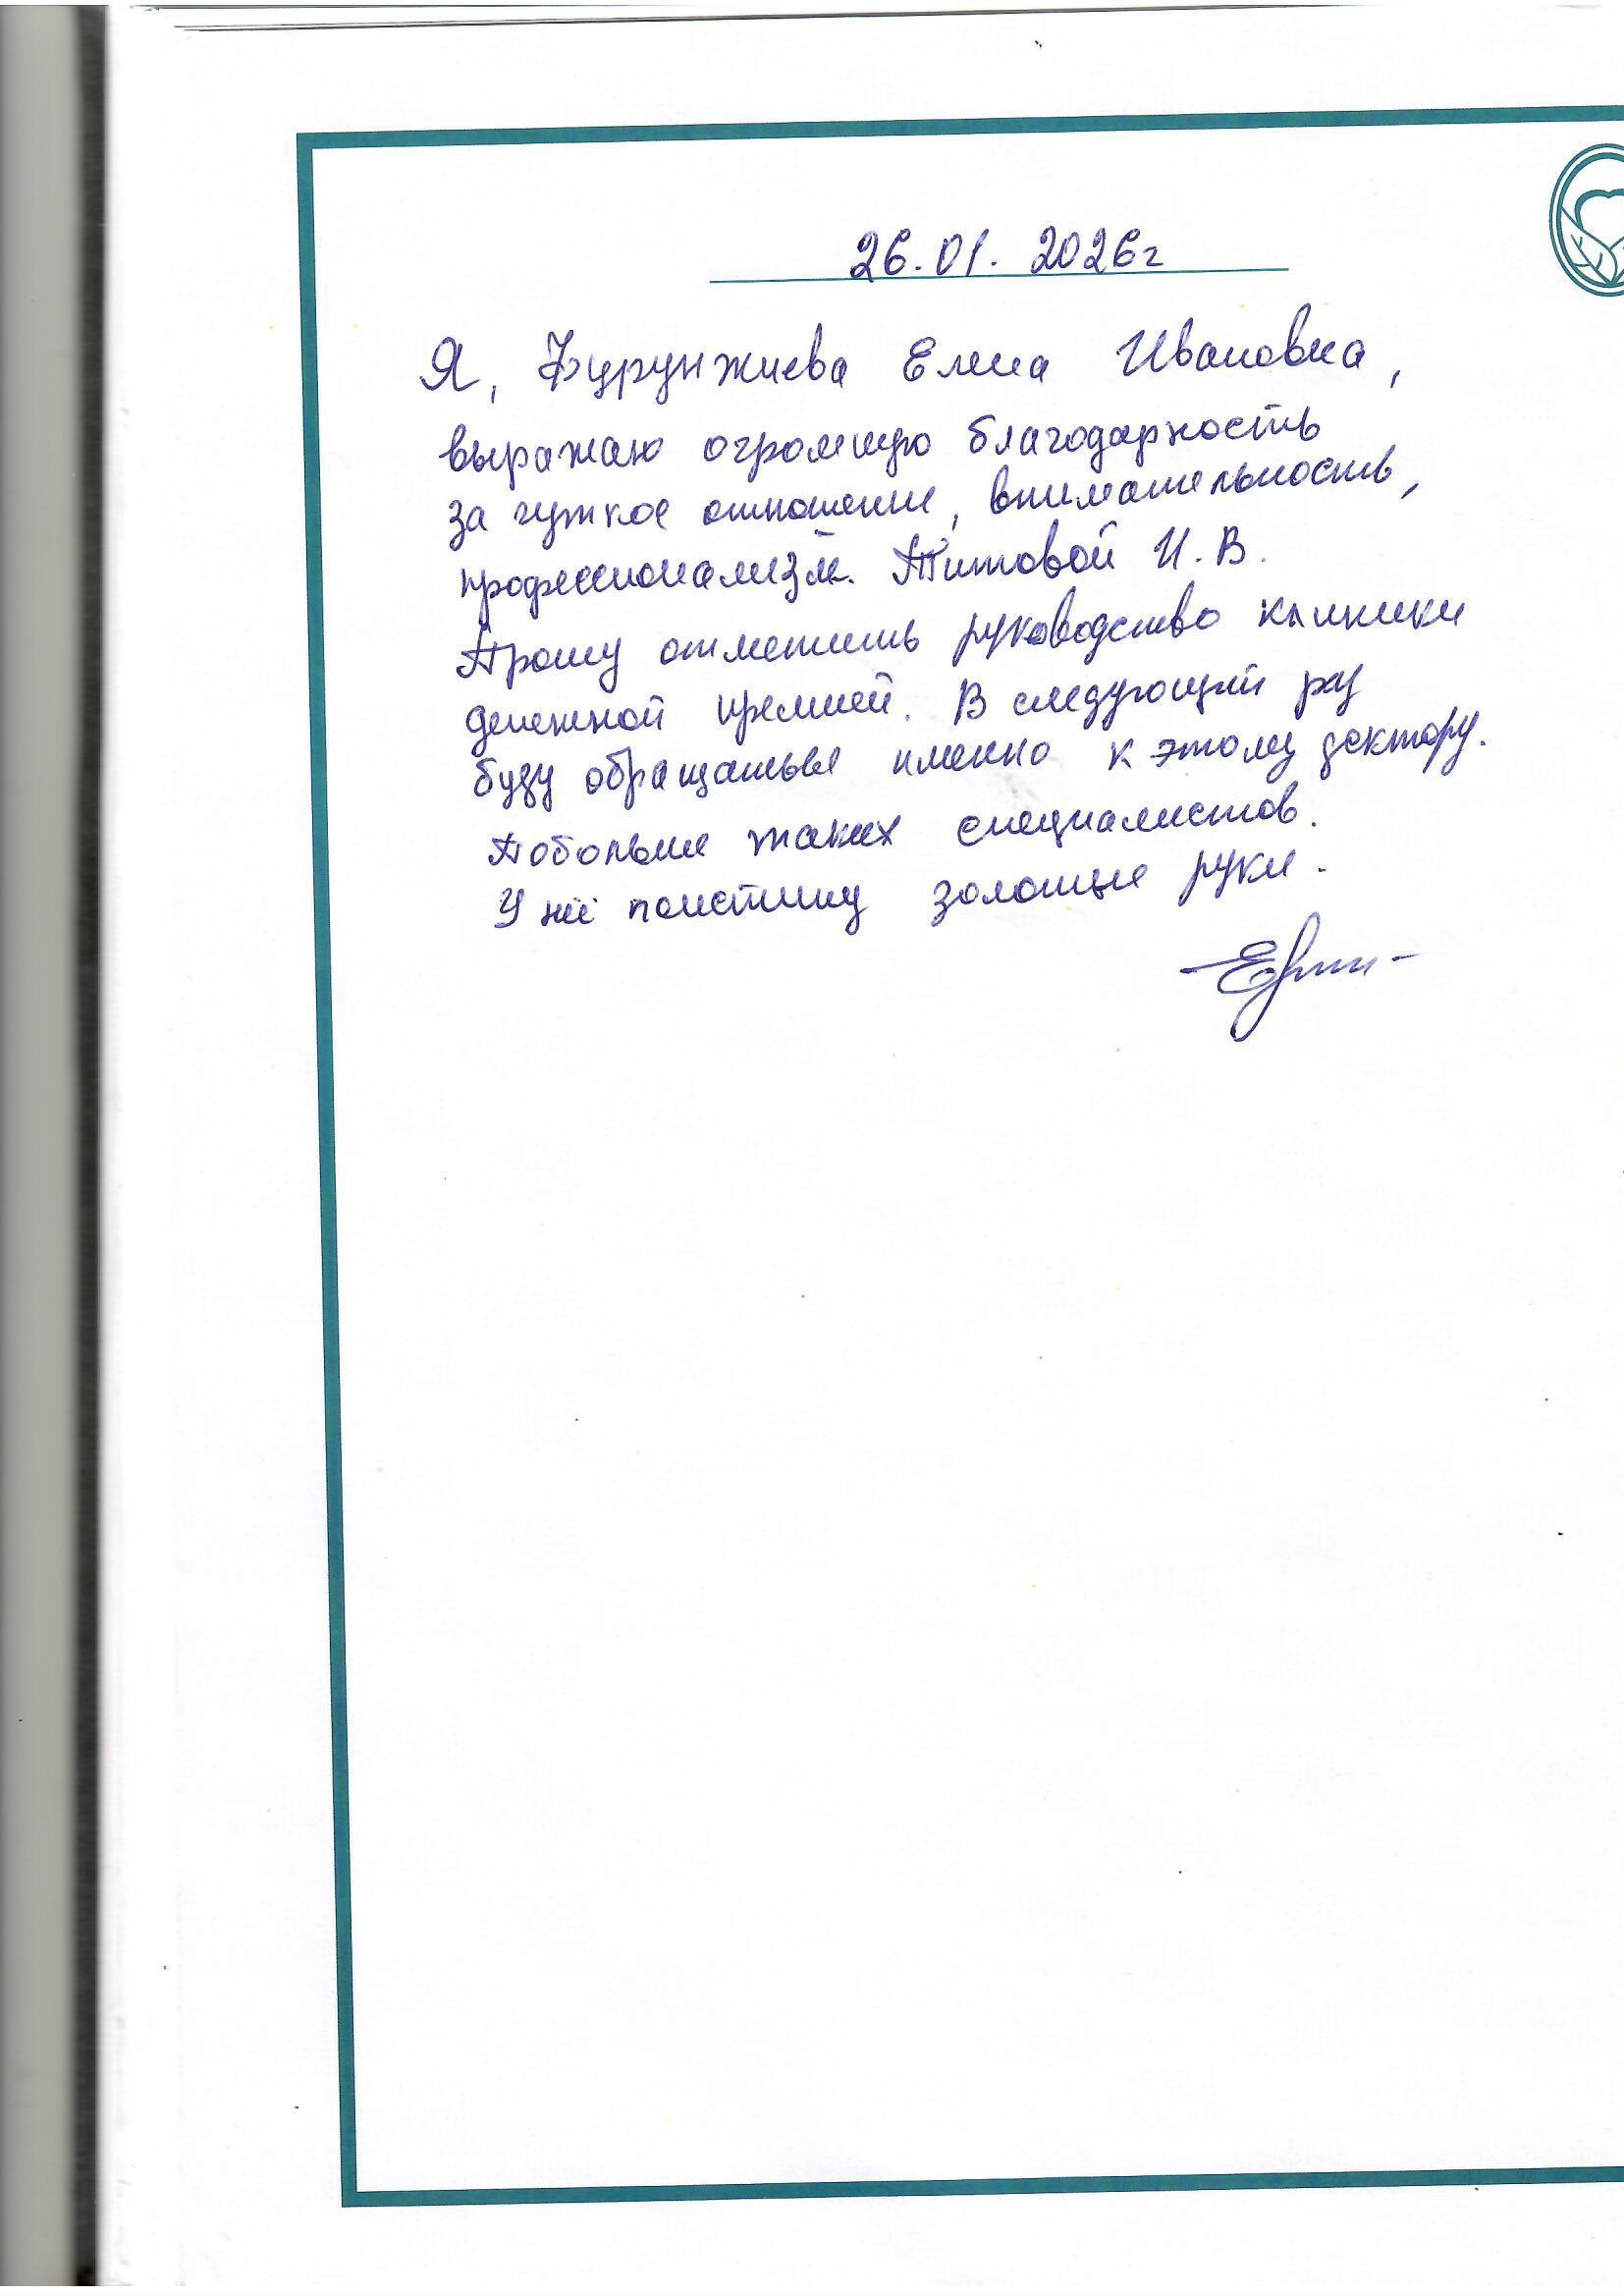 26.01.2026г
Я, Бурунжиева Елена Ивановна,
выражаю огромную благодарность
за чуткое отношение, внимательность,
профессионализм. Титовой И.В.
Прошу отметить руководство клиники
денежной премией. В следующий раз
буду обращаться именно к этому доктору.
Побольше таких специалистов.
У неё поистину золотые руки.